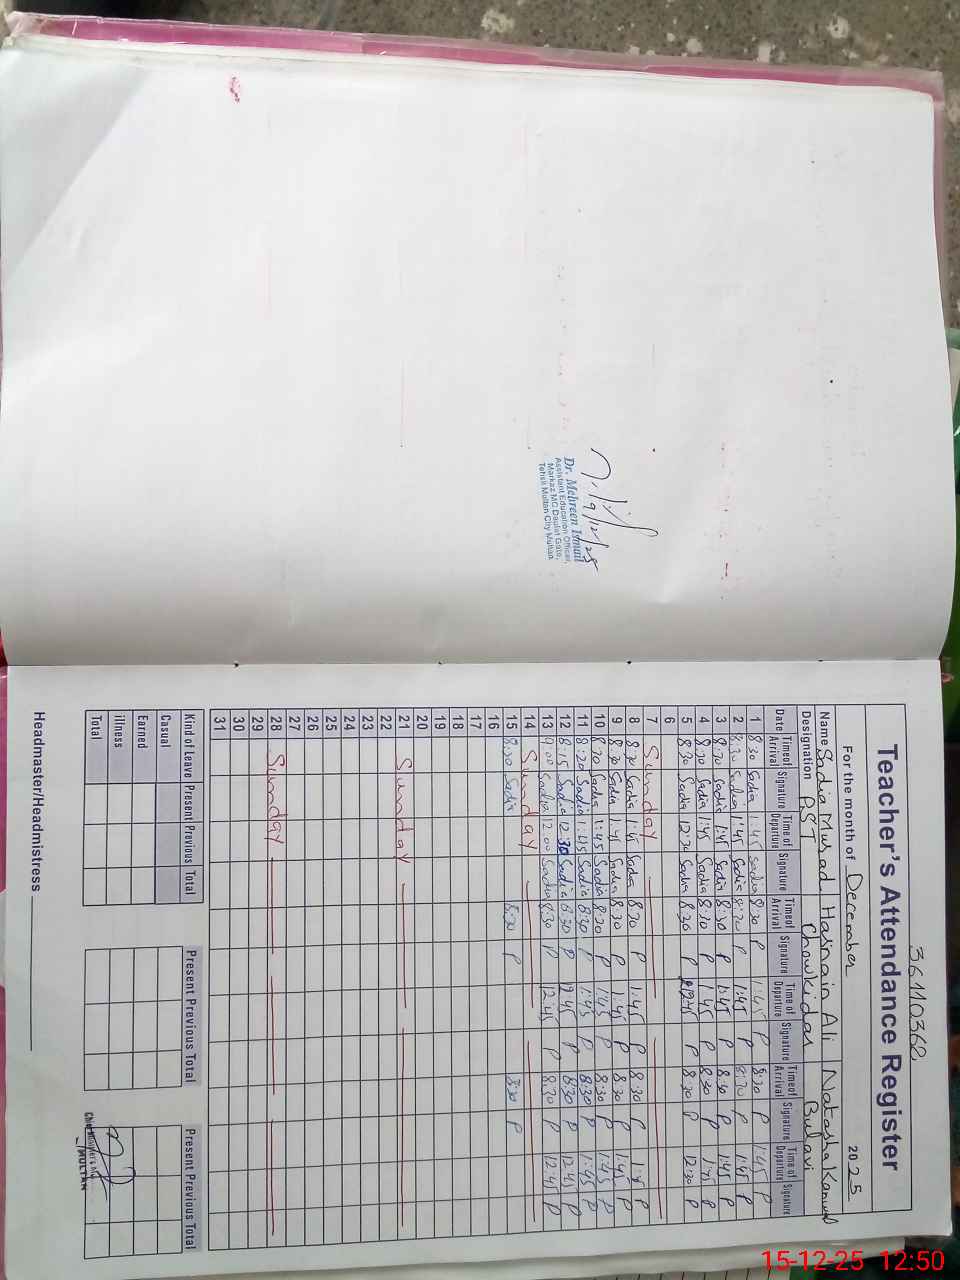 36110362
Teacher's Attendance Register
For the month of December 2025
Name Sadia Murad Hasnain Ali Natasha Kanwal
Designation PST Chowkidar Bulavi
Date Time of Arrival Signature Time of Departure Signature Time of Arrival Signature Time of Departure Signature Time of Arrival Signature Time of Departure Signature
1 8:30 Sadia 1:45 Sadia 8:30 P 1:45 P 8:30 P 1:45 P
2 8:30 Sadia 1:45 Sadia 8:30 P 1:45 P 8:30 P 1:45 P
3 8:30 Sadia 1:45 Sadia 8:30 P 1:45 P 8:30 P 1:45 P
4 8:30 Sadia 1:45 Sadia 8:30 P 1:45 P 8:30 P 1:45 P
5 8:30 Sadia 12:30 Sadia 8:30 P 12:45 P 8:30 P 12:30 P
6
7 Sunday
8 8:30 Sadia 1:45 Sadia 8:30 P 1:45 P 8:30 P 1:45 P
9 8:30 Sadia 1:45 Sadia 8:30 P 1:45 P 8:30 P 1:45 P
10 8:20 Sadia 1:45 Sadia 8:30 P 1:45 P 8:30 P 1:45 P
11 8:20 Sadia 1:45 Sadia 8:30 P 1:45 P 8:30 P 1:45 P
12 8:15 Sadia 12:30 Sadia 8:30 P 12:45 P 8:30 P 12:45 P
13 9:00 Sadia 12:00 Sadia 8:30 P 12:45 P 8:30 P 12:45 P
14 Sunday
15 8:30 Sadia 8:30 P 8:30 P
16
17
18
19
20
21 Sunday
22
23
24
25
26
27
28 Sunday
29
30
31
Kind of Leave Present Previous Total Present Previous Total Present Previous Total
Casual
Earned
illness
Total
MULTAN
Headmaster/Headmistress
19/12/25
Dr. Mehreen Ismail
Assistant Education Officer,
Markaz MC Daulat Gate,
Tehsil Multan City Multan
15-12-25 12:50